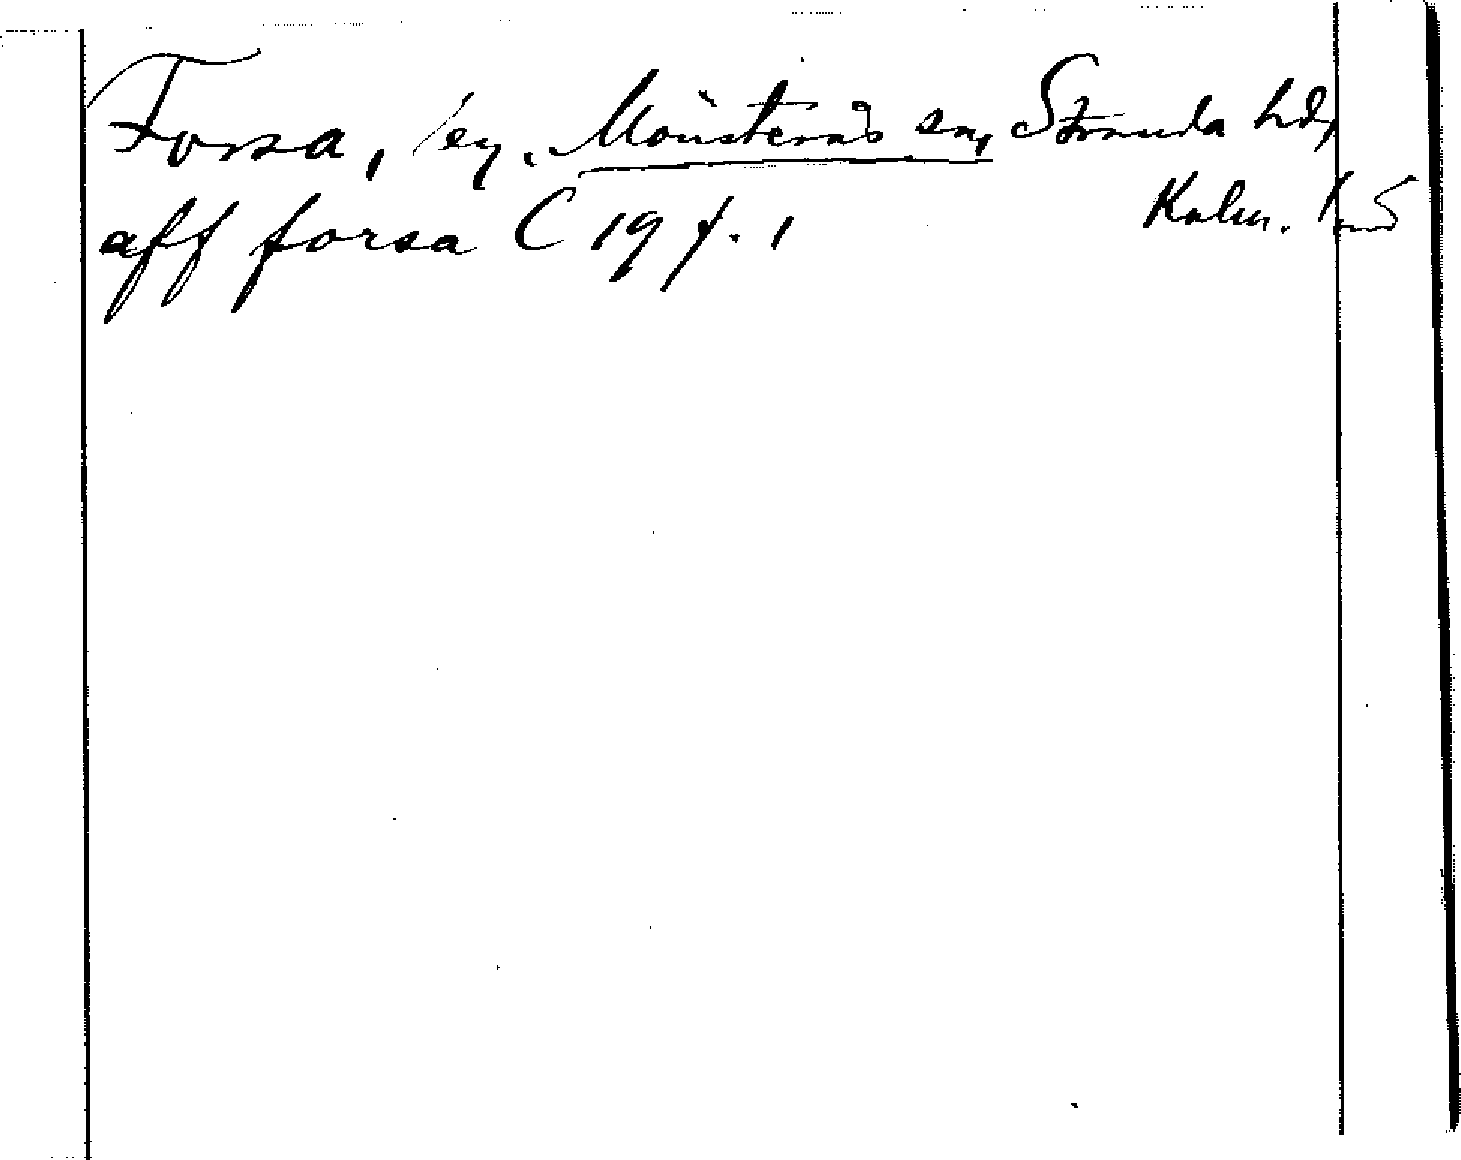 Forsa, by. Mönsterås sn, Stranda hd,
Kalm. län
aff forsa C 19 f. 1